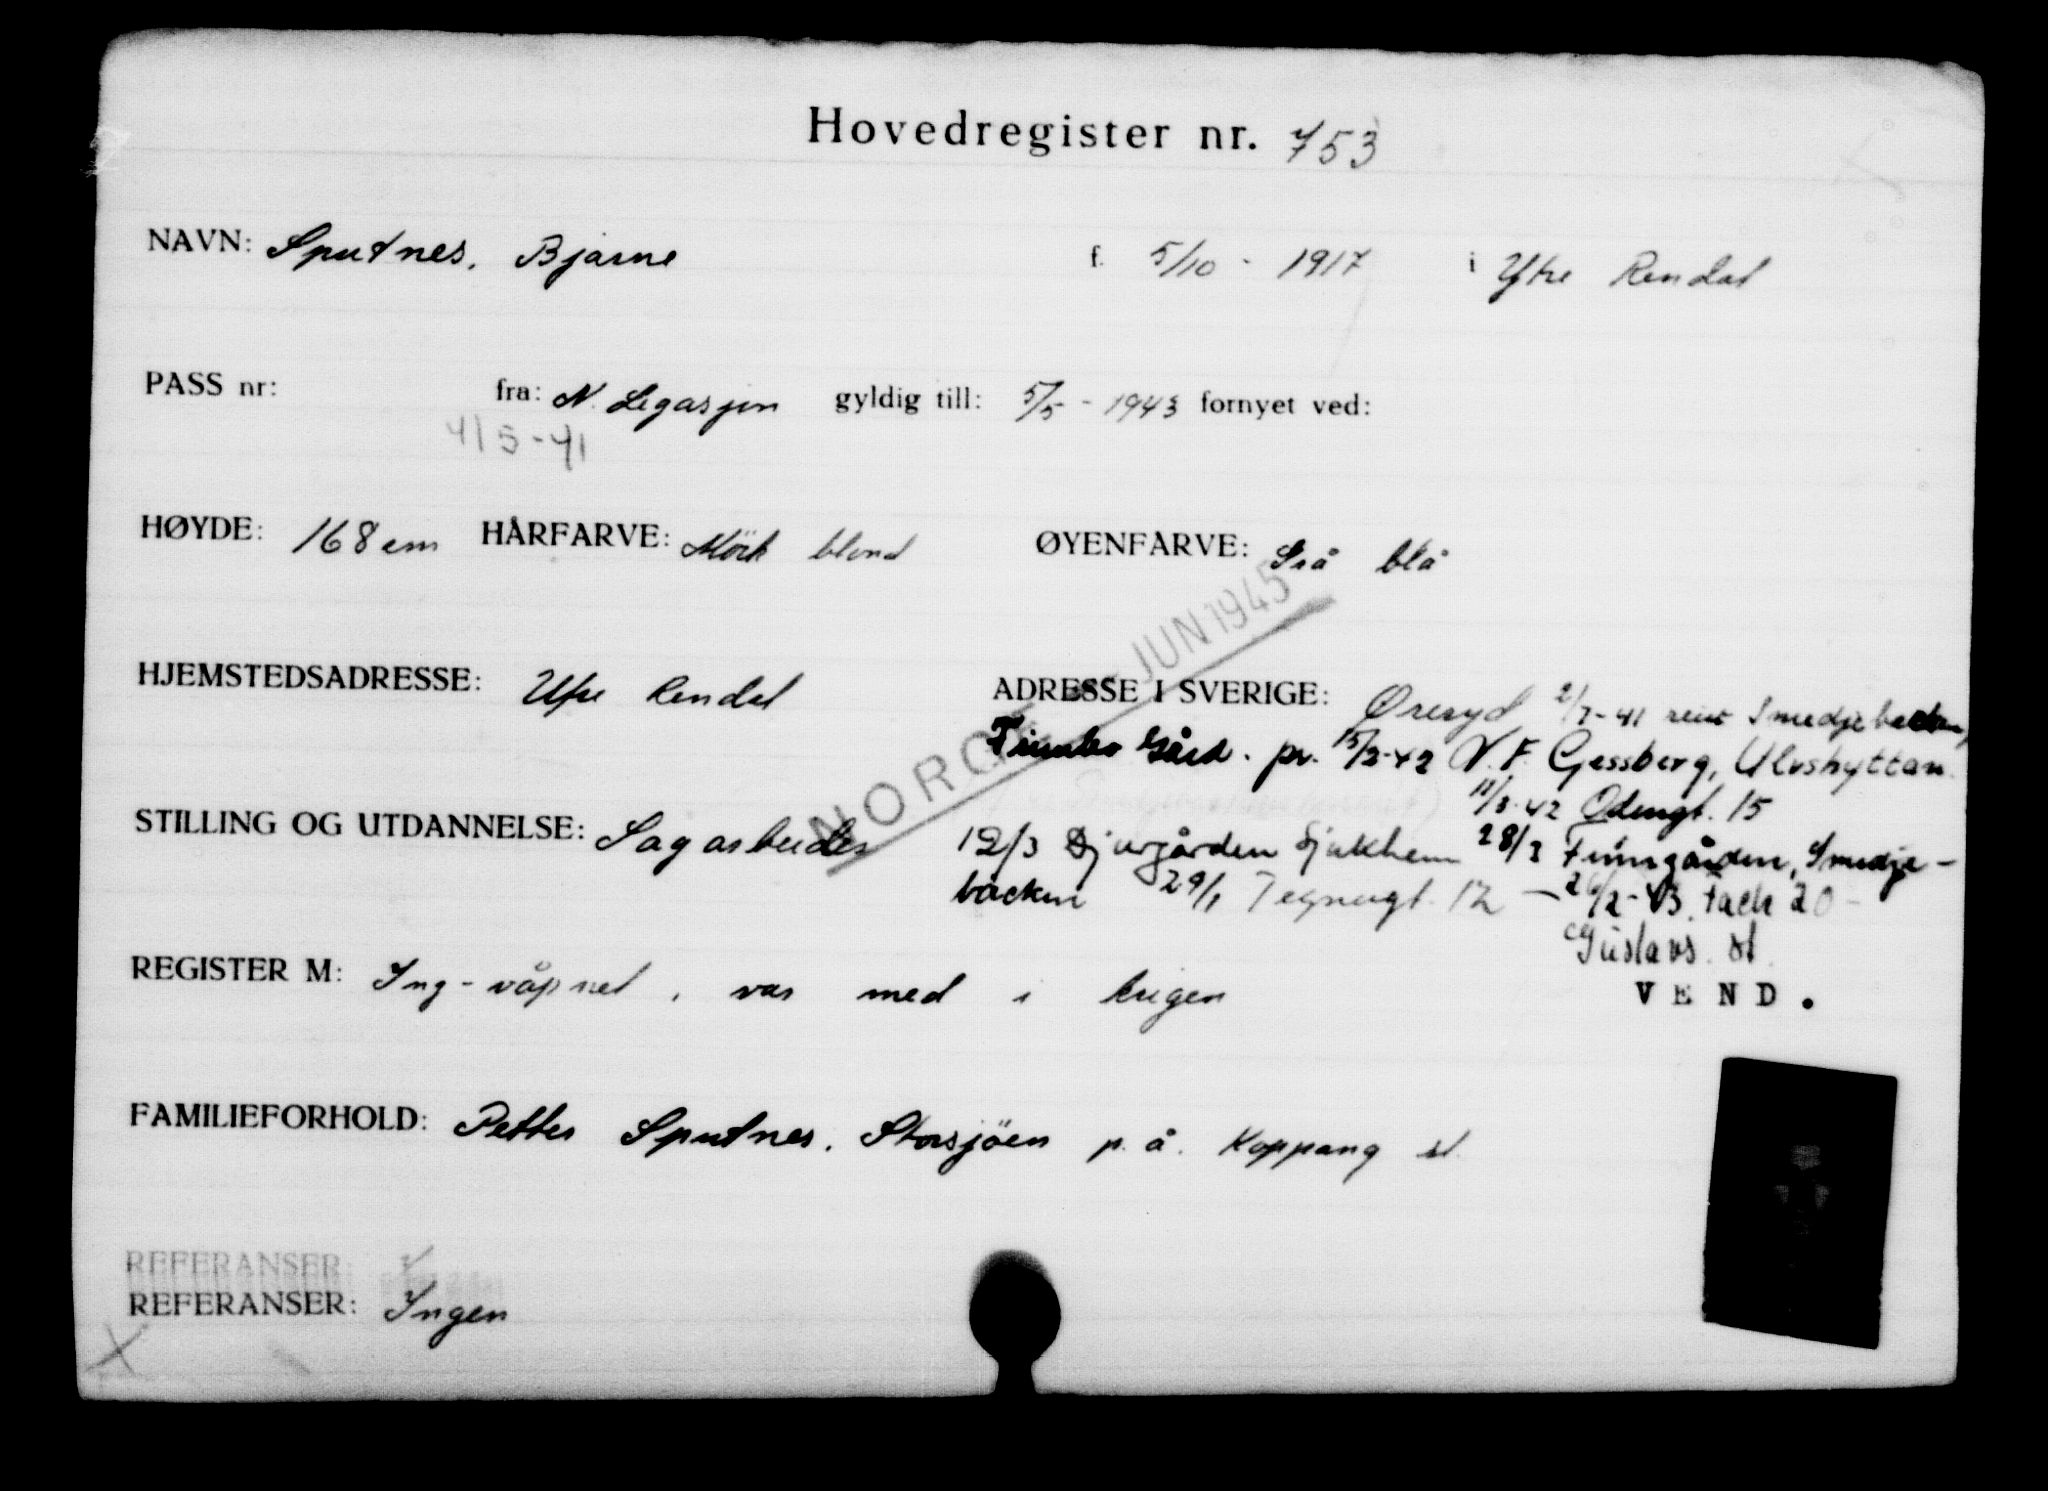 Hovedregister nr. 753
NAVN: Sputnes, Bjarne f. 5/10 - 1917 i Ytre Rendal
PASS nr: fra: N. Legasjon gyldig till: 5/5 - 1943 fornyet ved:
4/5-41
HØYDE: 168 cm HÅRFARVE: Mörk blond ØYENFARVE: Grå blå
JUN 1945
HJEMSTEDSADRESSE: Ytre Rendal ADRESSE I SVERIGE: Øreryd 2/7-41 reist Smedjebacken,
Gård. pr. 15/2-42 N. F. Gessberg, Ulvshyttan.
NORGE
11/3-42 Odengt. 15
STILLING OG UTDANNELSE: Sagarbeider 12/3 Djurgården Sjukhem 28/3 Finngården, Smedje-
backen 29/1 Tegnergt. 12 - 26/2-43. Fack 20-
Gustavs. st.
REGISTER M: Ing-våpnet, var med i krigen
VEND.
FAMILIEFORHOLD: Petter Sputnes. Storsjöen p. å. Koppang st.
REFERANSER:
REFERANSER: Ingen
X